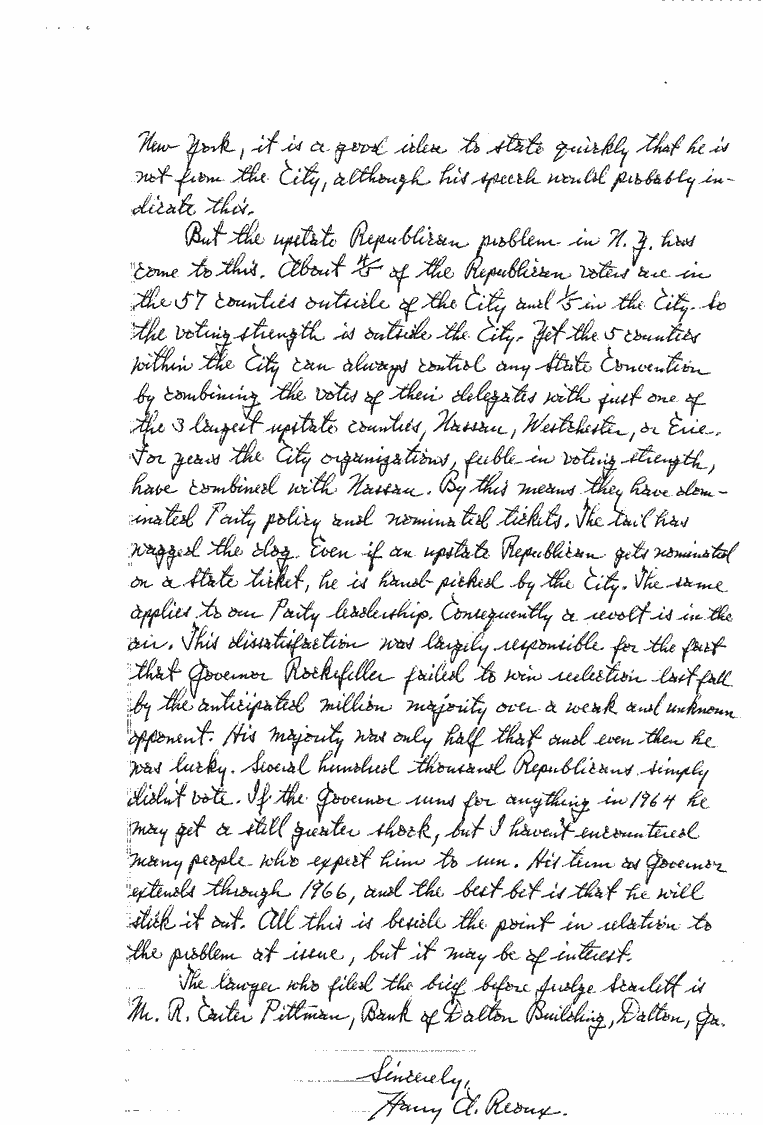 New York, it is a good idea to state quickly that he is
not from the City, although his speech would probably in-
dicate this.
But the upstate Republican problem in N.Y. has
come to this. About 4/5 of the Republican voters are in
the 57 counties outside of the City and 1/5 in the City. So
the voting strength is outside the City. Yet the 5 counties
within the City can always control any State Convention
by combining the votes of their delegates with just one of
the 3 largest upstate counties, Nassau, Westchester, or Erie.
For years the City organizations, feeble in voting strength,
have combined with Nassau. By this means they have dom-
inated Party policy and nominated tickets. The tail has
wagged the dog. Even if an upstate Republican gets nominated
on a state ticket, he is hand-picked by the City. The same
applies to our Party leadership. Consequently a revolt is in the
air. This dissatisfaction was largely responsible for the fact
that Governor Rockefeller failed to win reelection last fall
by the anticipated million majority over a weak and unknown
opponent. His majority was only half that and even then he
was lucky. Several hundred thousand Republicans simply
didn't vote. If the Governor runs for anything in 1964 he
may get a still greater shock, but I haven't encountered
many people who expect him to run. His term as Governor
extends through 1966, and the best bet is that he will
stick it out. All this is beside the point in relation to
the problem at issue, but it may be of interest.
The lawyer who filed the brief before Judge Scarlett is
Mr. R. Carter Pittman, Bank of Dalton Building, Dalton, Ga.
Sincerely,
Harry A. Reoux.